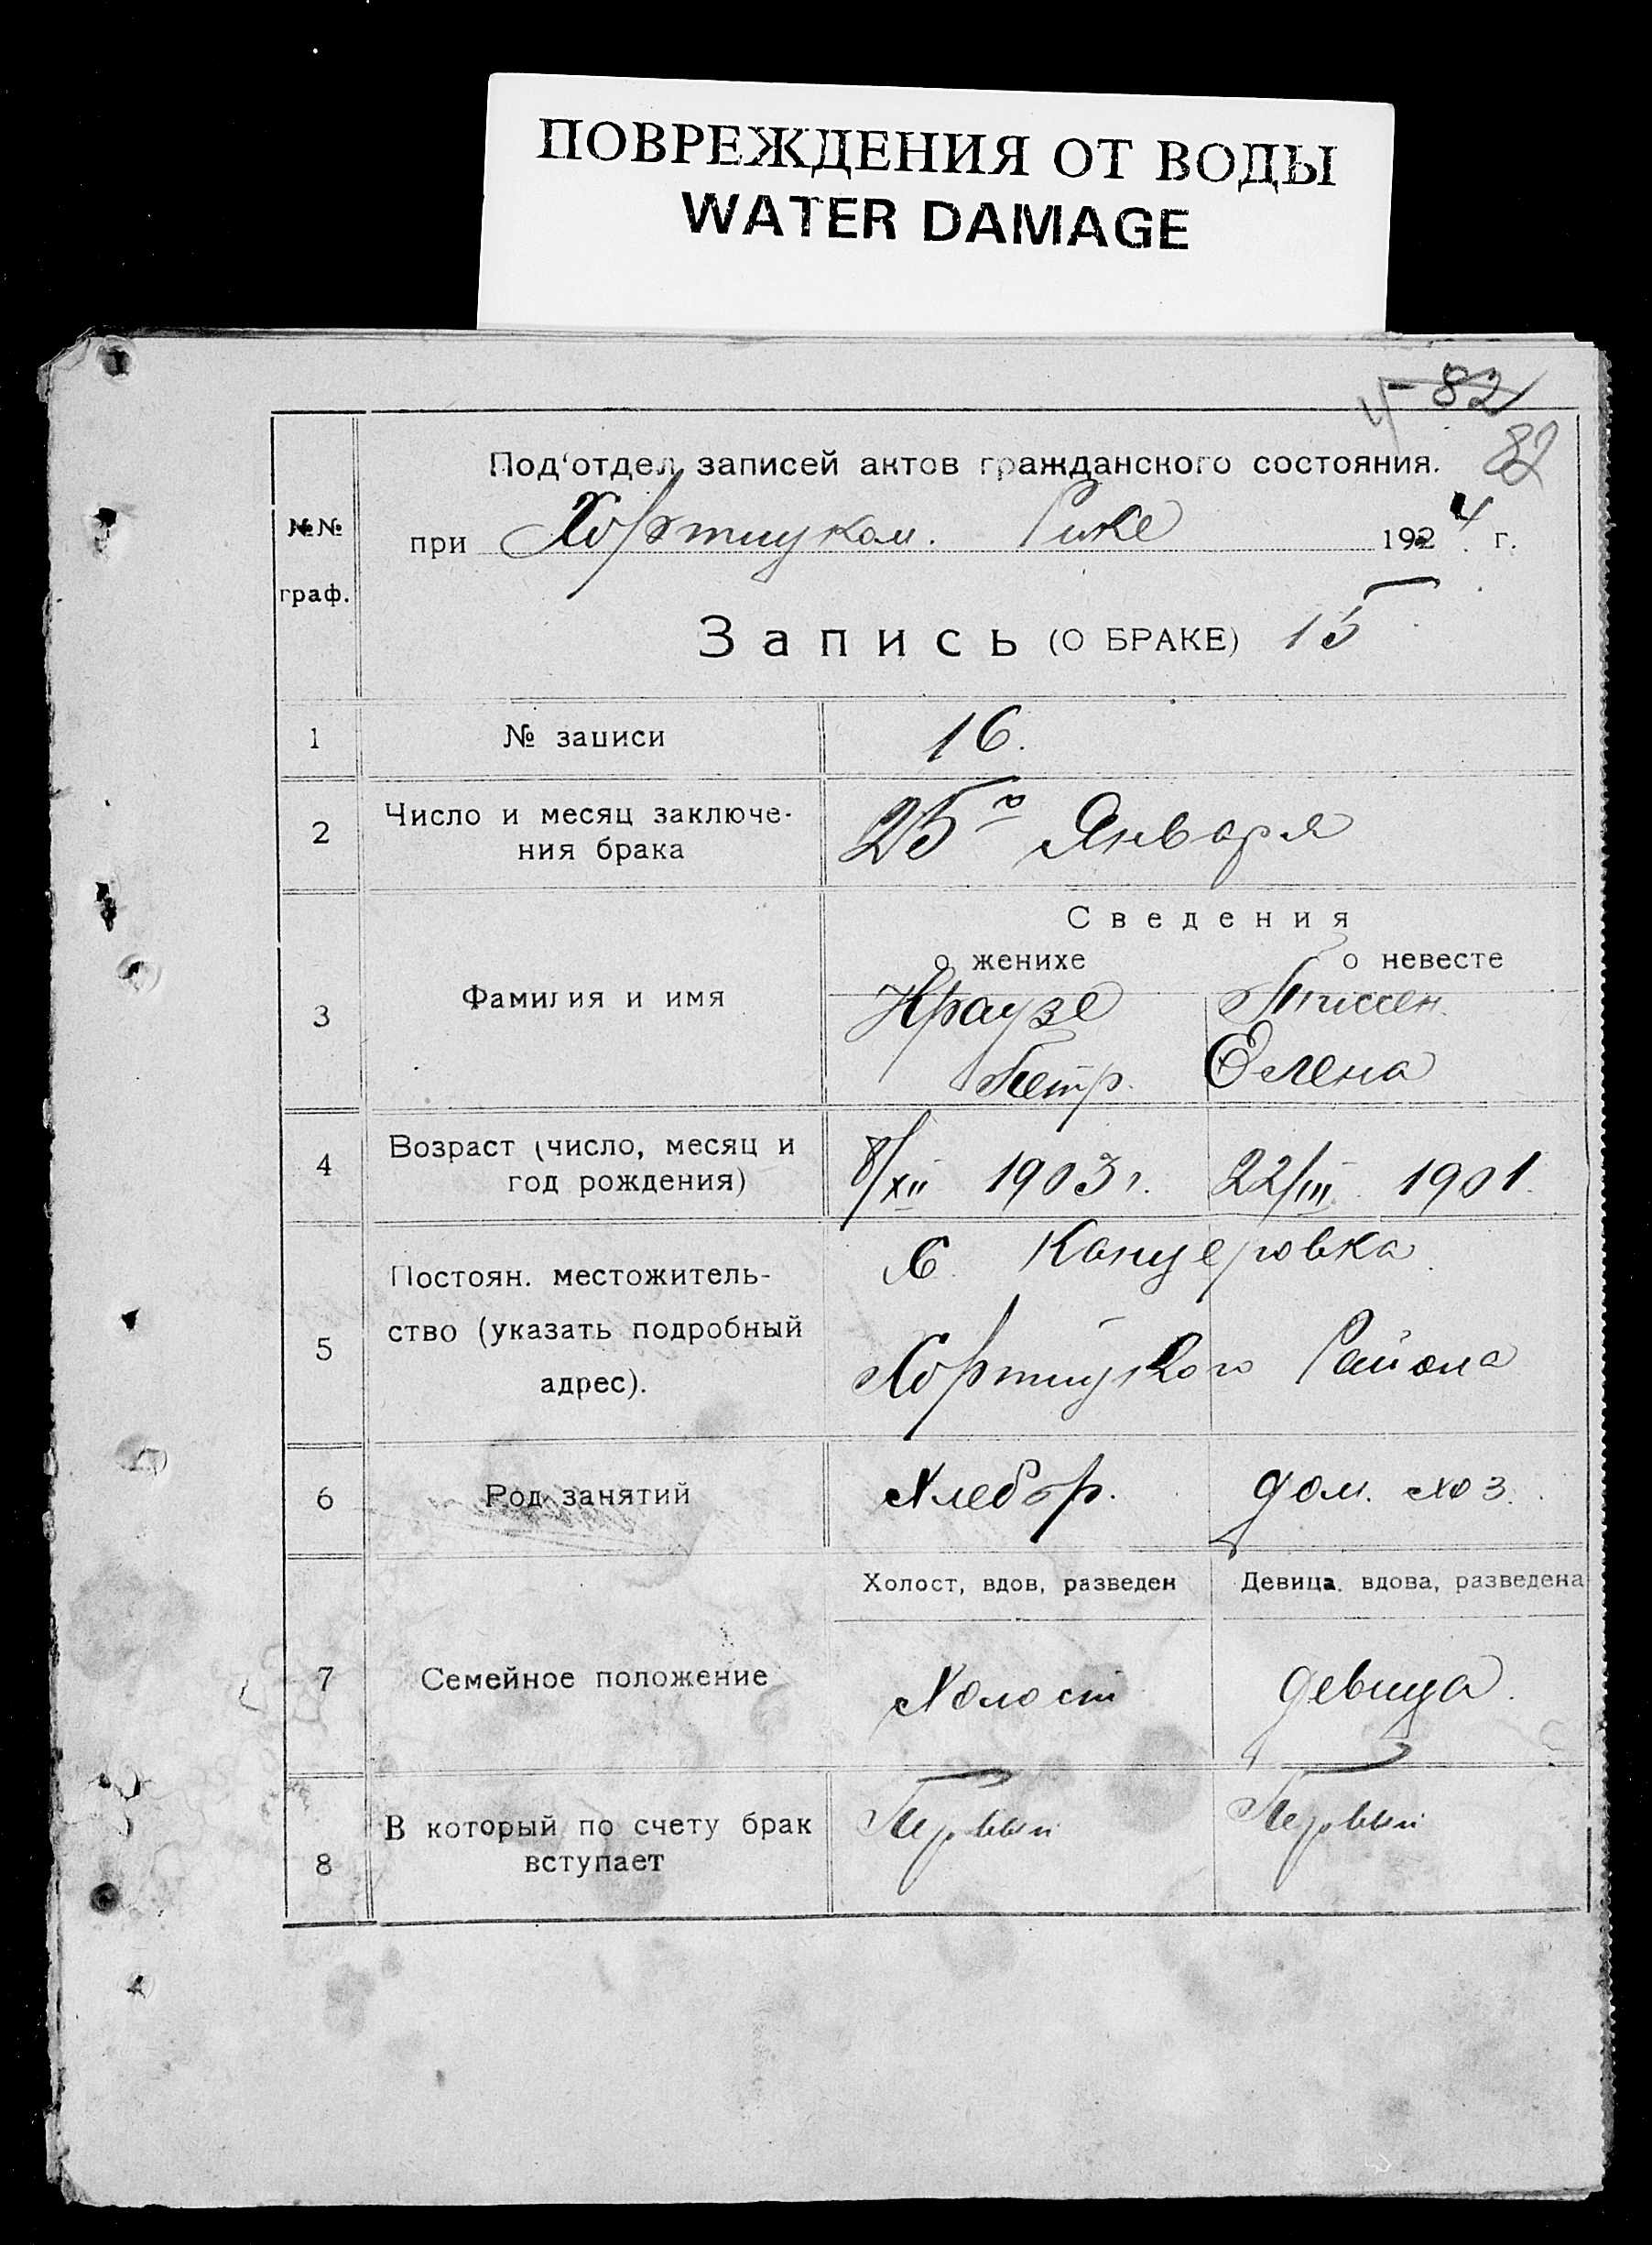 ПОВРЕЖДЕНИЯ ОТ ВОДЫ
WATER DAMAGE
82
82
Под‘отдел записей актов гражданского состояния.
№№
граф.
при Хортицком. Рике 1924 г.
Запись (О БРАКЕ) 15
1 № записи 16.
2 Число и месяц заключе-
ния брака
25го Января
Сведения
о женихе о невесте
3 Фамилия и имя
Краузе Тиссен
Петр. Елена
4 Возраст (число, месяц и
год рождения)
8/XII 1903 г. 22/III 1901.
5 Постоян. местожитель-
ство (указать подробный
адрес).
С. Канцеровка
Хортицкого Района
6 Род занятий Хлебор. дом. хоз.
Холост, вдов, разведен Девица, вдова, разведена
7 Семейное положение Холост девица.
8 В который по счету брак
вступает
Первый Первый